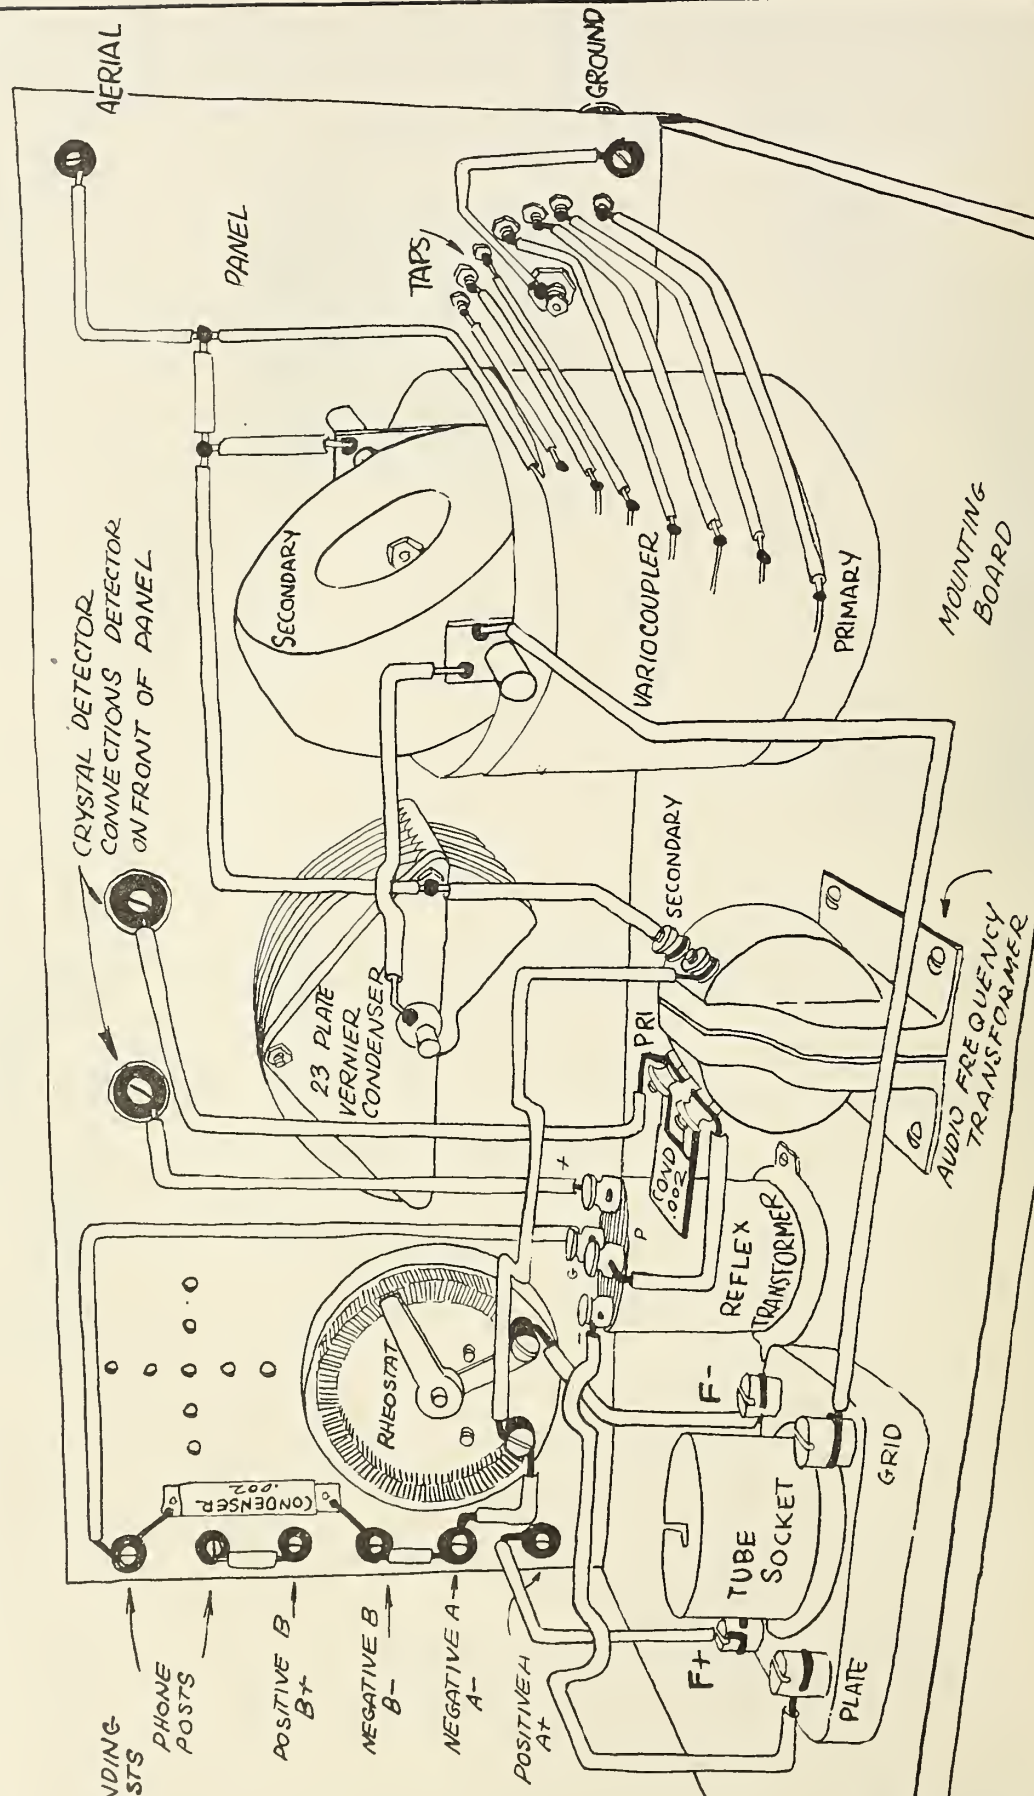 AERIAL
GROUND
PANEL
TAPS
CRYSTAL DETECTOR
CONNECTIONS DETECTOR
ON FRONT OF PANEL
SECONDARY
VARIOCOUPLER
PRIMARY
MOUNTING
BOARD
23 PLATE
VERNIER
CONDENSER
SECONDARY
PRI
COND
.002
AUDIO FREQUENCY
TRANSFORMER
+
G
P
-
REFLEX
TRANSFORMER
RHEOSTAT
CONDENSER
.002
F-
GRID
TUBE
SOCKET
F+
PLATE
NDING
STS
PHONE
POSTS
POSITIVE B
B+
NEGATIVE B
B-
NEGATIVE A
A-
POSITIVE A
A+